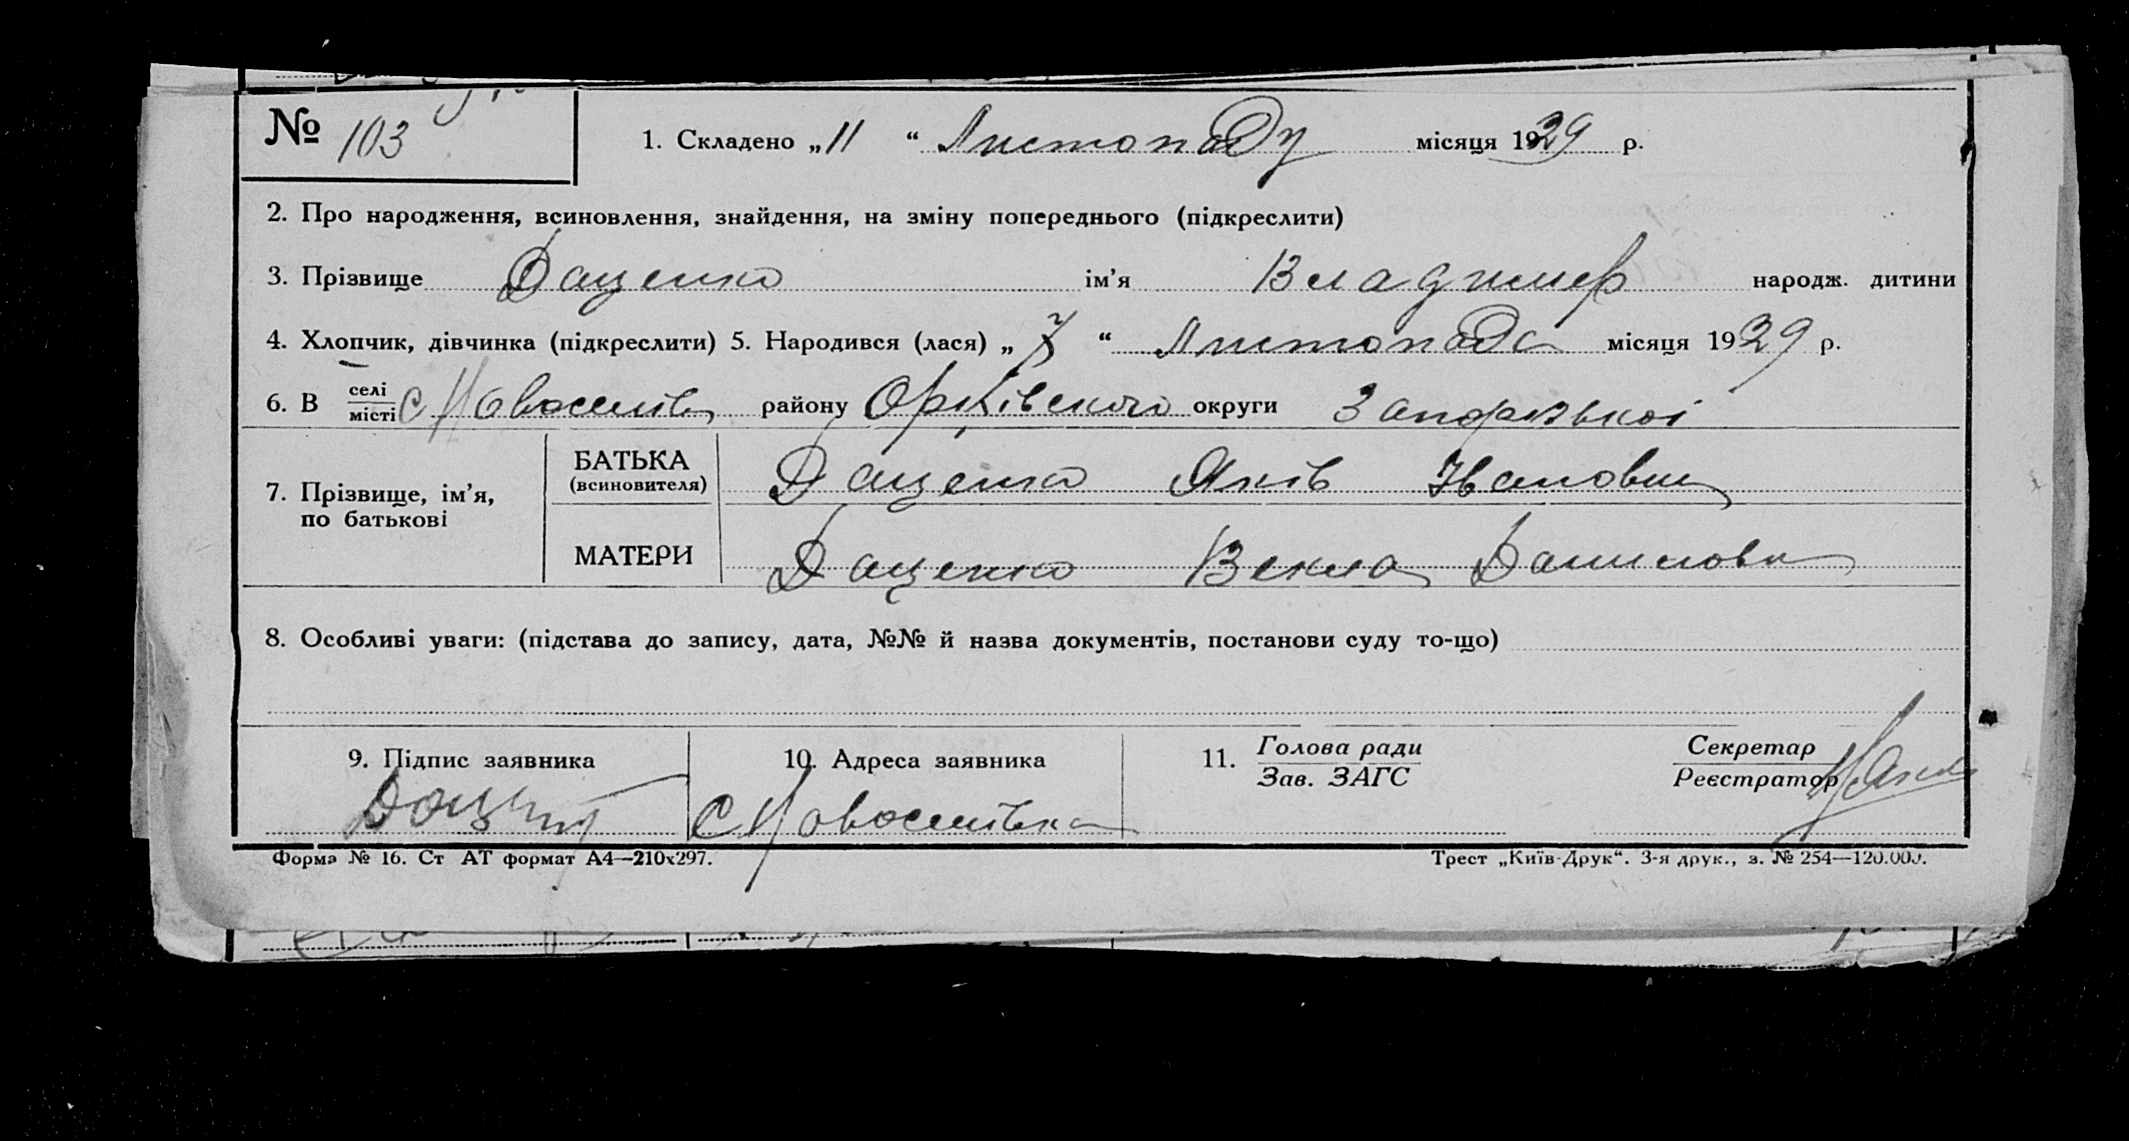 № 103
1. Складено „11“ Листопаду місяця 1929 р.
2. Про народження, всиновлення, знайдення, на зміну попереднього (підкреслити)
3. Прізвище Даценко ім'я Владимер народж. дитини
4. Хлопчик, дівчинка (підкреслити) 5. Народився (лася) „7“ Листопада місяця 1929 р.
6. В селі/місті с Новоселів району Оріхівського округи Запорізької
7. Прізвище, ім'я, по батькові
БАТЬКА (всиновителя) Даценко Яків Іванович
МАТЕРИ Даценко Векла Данилова
8. Особливі уваги: (підстава до запису, дата, №№ й назва документів, постанови суду то-що)
9. Підпис заявника
10. Адреса заявника
11. Голова ради / Зав. ЗАГС
Секретар / Реєстратор
с Новоселівка
Форма № 16. Ст АТ формат А4—210х297.
Трест „Київ-Друк“. 3-я друк., з. № 254—120.000.